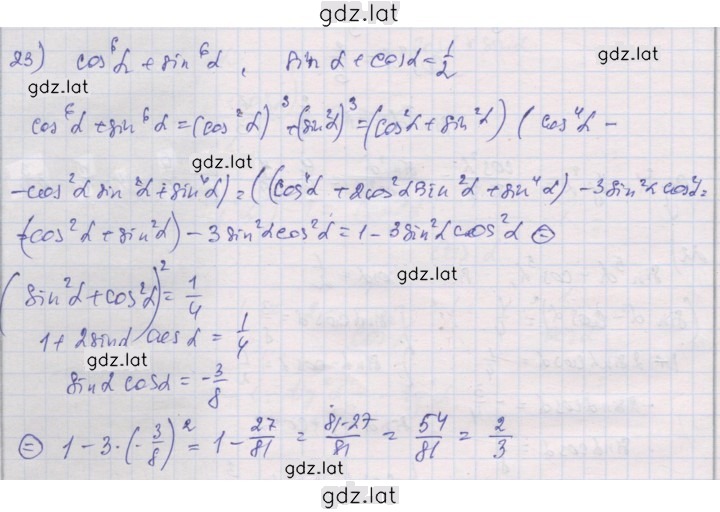 gdz.lat
23) cos⁶α + sin⁶α, sin α + cos α = 1/2
gdz.lat
gdz.lat
cos⁶α + sin⁶α = (cos²α)³ + (sin²α)³ = (cos²α + sin²α) (cos⁴α -
gdz.lat
- cos²α sin²α + sin⁴α) = ((cos⁴α + 2cos²α sin²α + sin⁴α) - 3sin²α cos²α =
= (cos²α + sin²α) - 3sin²α cos²α = 1 - 3sin²α cos²α ⊜
gdz.lat
(sin²α + cos²α)² = 1/4
1 + 2sinα cosα = 1/4
gdz.lat
sinα cosα = -3/8
⊜ 1 - 3·(-3/8)² = 1 - 27/81 = 81-27/81 = 54/81 = 2/3
gdz.lat
gdz.lat